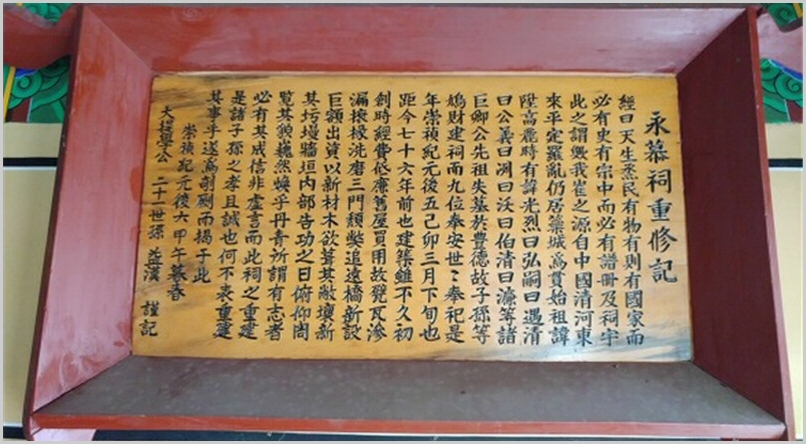 永慕祠重修記
經曰天生烝民有物有則有國家而
必有史有宗中而必有譜冊及祠宇
此之謂歟我崔之源自中國清河東
來平定羅亂仍居築城爲貫始祖諱
陞高麗時有諱光烈曰弘嗣曰遇清
曰公義曰冽曰沃曰伯清曰濂等諸
巨卿公先祖失墓於豊德故子孫等
鳩財建祠而九位奉安世〻奉祀是
年崇禎紀元後五己卯三月下旬也
距今七十六年前也建築雖不久初
創時經費低廉舊屋買用故甃瓦滲
漏椽桷洗磨三門頹獘追遠橋新設
巨額出資以新材木欲葺其敝壞新
其圬墁牆垣內部告功之日俯仰周
覧其貌巍然煥乎丹靑所謂有志者
必有其成信非虛言而此祠之重建
是諸子孫之孝且誠也何不表重建
其事乎遂爲剞劂而揭于此
崇禎紀元後六甲午暮春
大提學公 二十一世孫 益漢 謹記